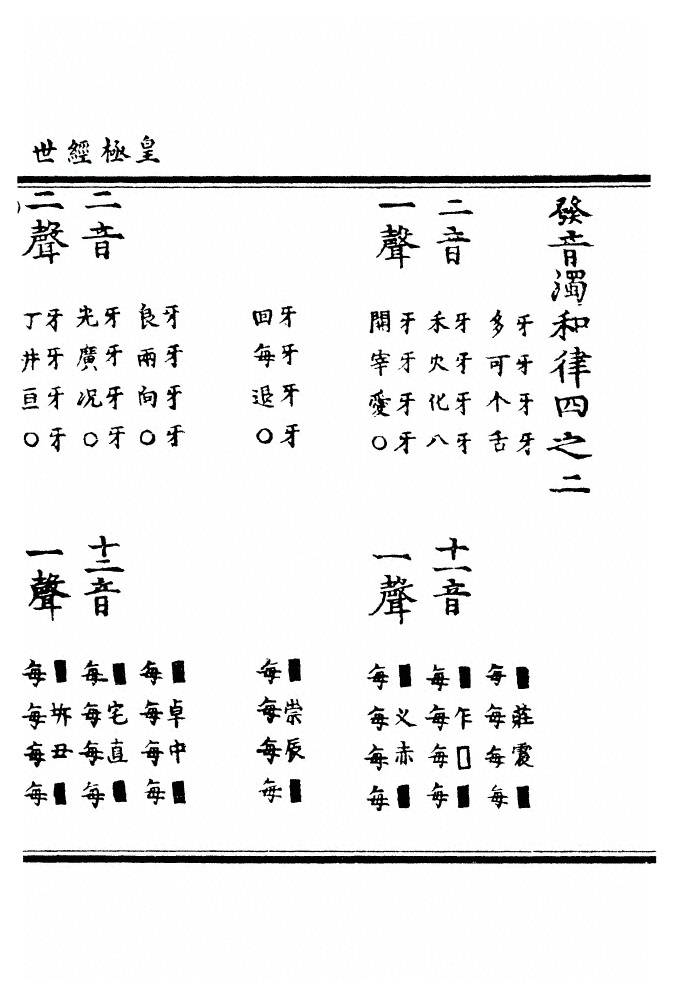 皇極經世
發音濁和律四之二
二音
一聲
牙牙牙牙
多可个舌
牙牙牙牙
禾火化八
牙牙牙牙
開宰愛○
牙牙牙牙
回每退○
十一音
一聲
■莊震■
每每每每
■乍□■
每每每每
■叉赤■
每每每每
■崇辰■
每每每每
二音
二聲
牙牙牙牙
良兩向○
牙牙牙牙
光廣况○
牙牙牙牙
丁井亘○
十二音
一聲
■卓中■
每每每每
■宅直■
每每每每
■坼丑■
每每每每